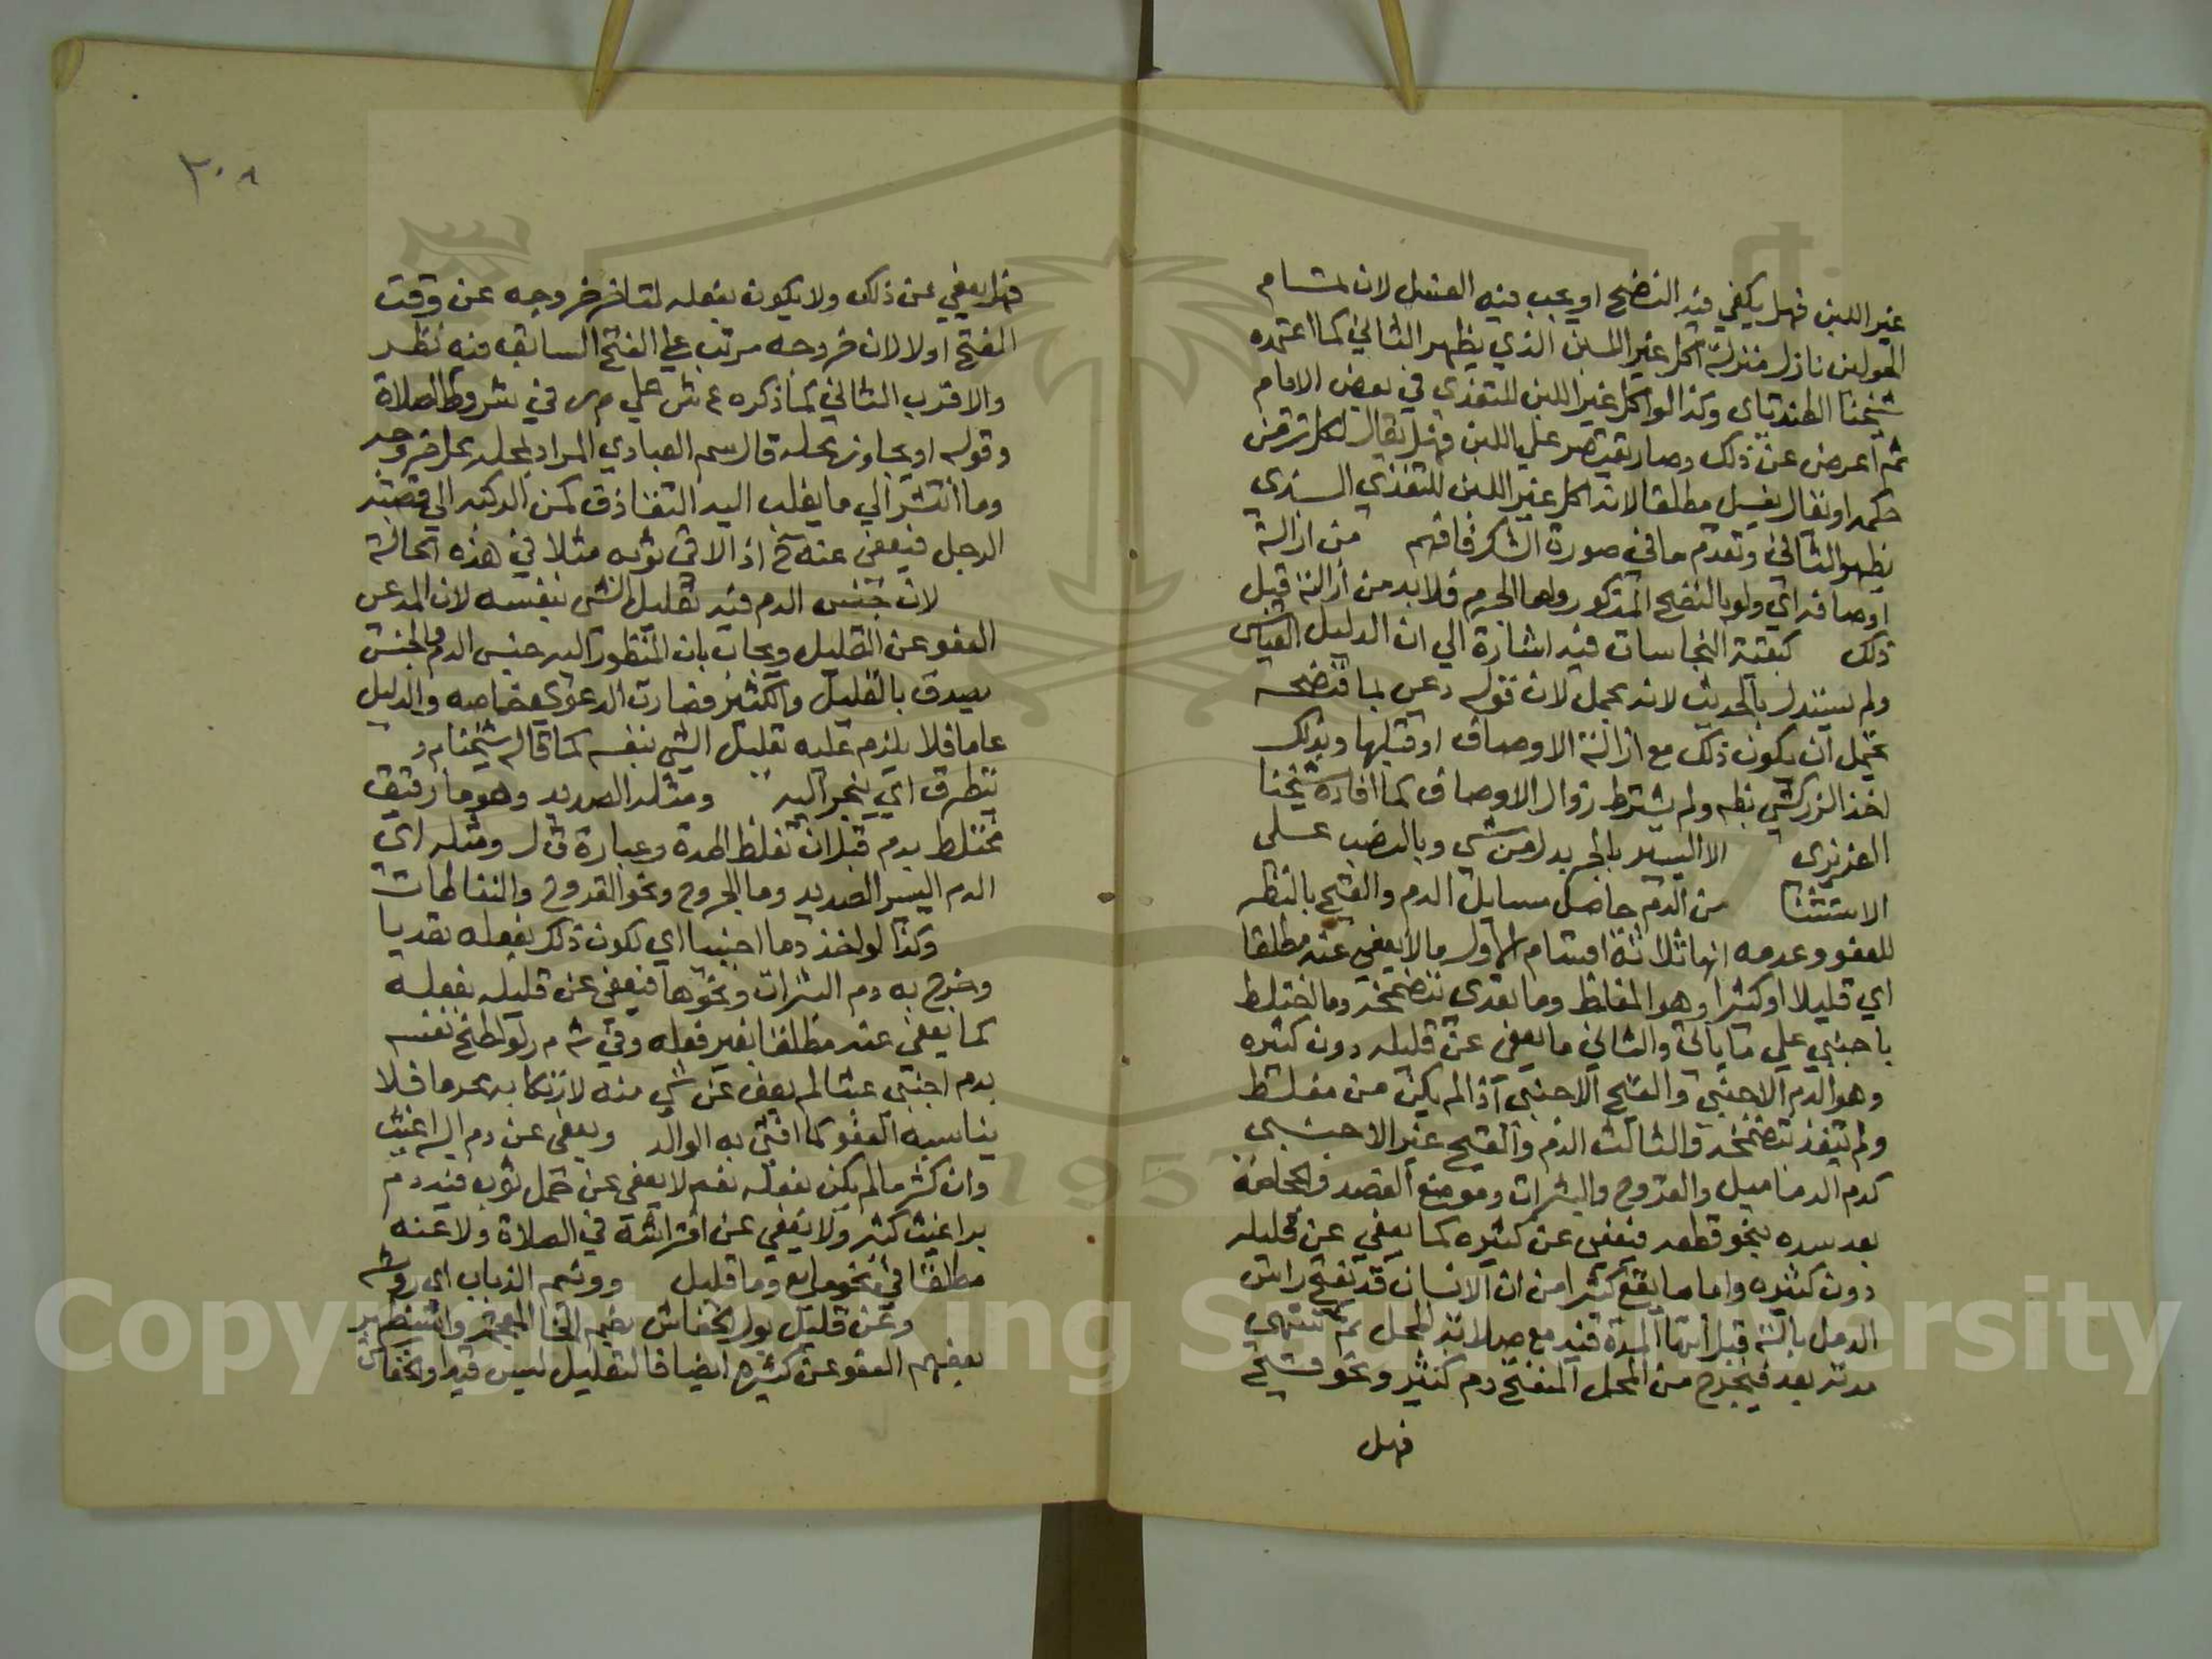 غير اللبن فهل يكفي فيه النضح او يجب فيه الغسل لان تمام
الحولين نازل منزلة اكل غير اللبن الذي يظهر الثاني كما اعتمده
شيخنا الطندتاى وكذا لو اكل غير اللبن للتغذى في بعض الايام
ثم اعرض عن ذلك وصار يقتصر على اللبن فهل يقال لكل زمن
حكمه او يقال يغسل مطلقا لانه اكل غير اللبن للتغذي الذي
يظهر الثاني وتقدم ما في صورة السكر فافهم من ازالة
اوصافه اي ولو بالنضح المذكور واما الجرم فلا بد من ازالته قبل
ذلك كبقية النجاسات فيه اشارة الي ان الدليل القياس
ولم يستدل بالحديث لانه مجمل لان قوله دعى بما فنضحه
يحتمل ان يكون ذلك مع ازالة الاوصاف او قبلها وبذلك
اخذ الزركشي ولم يشترط زوال الاوصاف كما افاده شيخنا
العزيزى الا اليسير بالجر بدل من شي وبالنصب على
الاستثنا من الدم حاصل مسايل الدم والقيح بالنظر
للعفو وعدمه انها ثلاثة اقسام الاول ما لا يعفى عنه مطلقا
اي قليلا او كثيرا وهو المغلظ وما تعدى بتضمخه وما اختلط
باجنبي علي ما ياتى والثاني ما يعفى عن قليله دون كثيره
وهو الدم الاجنبي والقيح الاجنبى اذا لم يكن من مغلظ
ولم يتعد بتضمخه والثالث الدم والقيح غير الاجنبي
كدم الدماميل والقروح والبثرات وموضع الفصد والحجامة
بعد سده بنحو قطعه فيعفى عن كثيره كما يعفى عن قليله
دون كثيره واما ما يقع كثيرا من ان الانسان قد يفتح راس
الدمل بالة قبل انتها المدة فيه مع صلابة المحل ثم تنتهي
مدته بعد فيخرج من المحل المنفتح دم كثير ونحو قيح
فهل
٣٠٨
فهل يعفي عن ذلك ولا يكون بفعله لتاخر خروجه عن وقت
الفتح اولا لان خروجه مرتب على الفتح السابق فيه نظر
والاقرب الثاني كما ذكره ع ش علي م ر في شروط الصلاة
وقوله او يجاوز محله قال سم العبادي المراد بمحله محل خروجه
وما انتشر الي ما يغلب اليه التقاذف كمن الركبه الي قصبة
الرجل فيعفى عنه ح اذا لاقى ثوبه مثلا في هذه الحالة
لان جنس الدم فيه تعليل الشي بنفسه لان المدعى
العفو عن القليل ويجاب بان المنظور اليه جنس الدم والجنس
يصدق بالقليل والكثير فصارت الدعوى خاصه والدليل
عاما فلا يلزم عليه تعليل الشي بنفسه كما قاله شيخنا م د
يتطرق اي ينجر اليه ومثله الصديد وهو ما رقيق
مختلط بدم قبل ان تغلظ المدة وعبارة ق ل ومثله اى
الدم اليسير الصديد وما الجروح ونحو القروح والنفاطات
وكذا لو اخذ دما اجنبيا اي لكون ذلك بفعله تعديا
وخرج به دم البثرات ونحوها فيعفى عن قليله بفعله
كما يعفى عنه مطلقا بغير فعله وفي ش م ر لو لطخ نفسه
بدم اجنبى عبثا لم يعف عن شي منه لارتكابه محرما فلا
يناسبه العفو كما افتى به الوالد ويعفى عن دم البراغيث
وان كثر ما لم يكن بفعله نعم لا يعفى عن حمل ثوب فيه دم
براغيث كثير ولا يعفي عن افتراشه في الصلاة ولا عنه
مطلقا في نحو مايع وما قليل وونيم الذباب اى روثه
وعن قليل بول الخفاش بضم الخا المعجمة واستظهر
بعضهم العفو عن كثيره ايضا فالتقليل ليس قيدا والخفاش
Copyright © King Saud University
1957